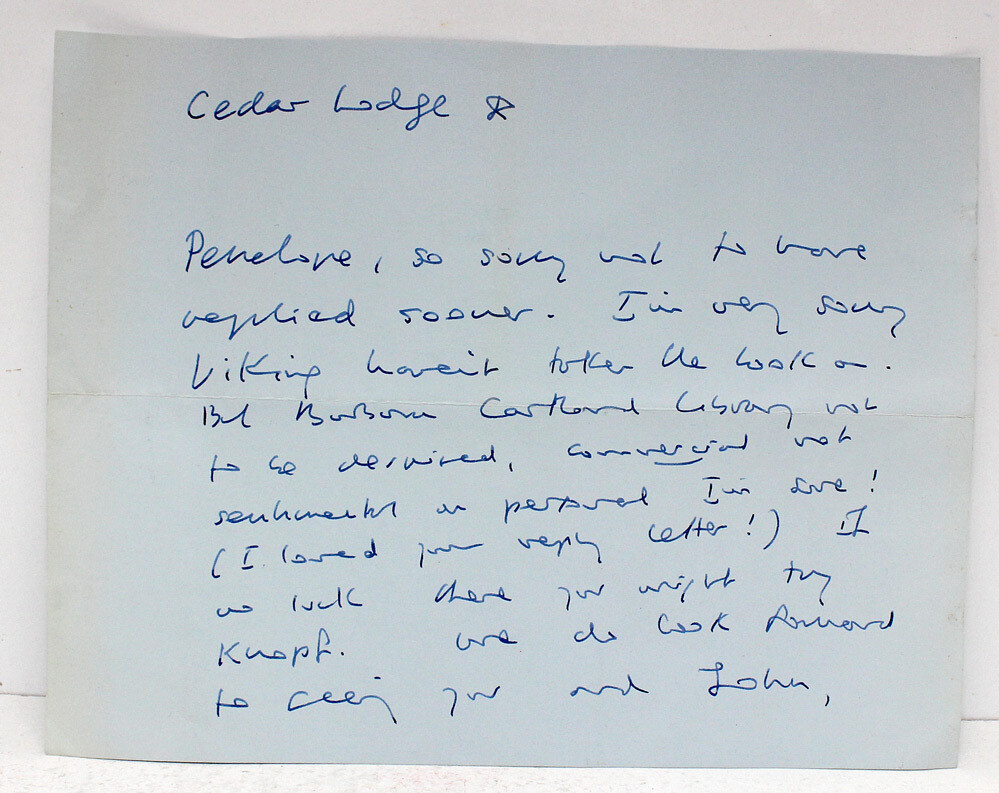 Cedar Lodge
Penelope, so sorry not to have
replied sooner. I'm very sorry
Viking haven't taken the book on.
But Barbara Cartland Library not
to be despised, commercial not
sentimental or personal I'm sure!
(I loved your reply letter!) If
no luck there you might try
Knopf. We do look forward
to seeing you and John,